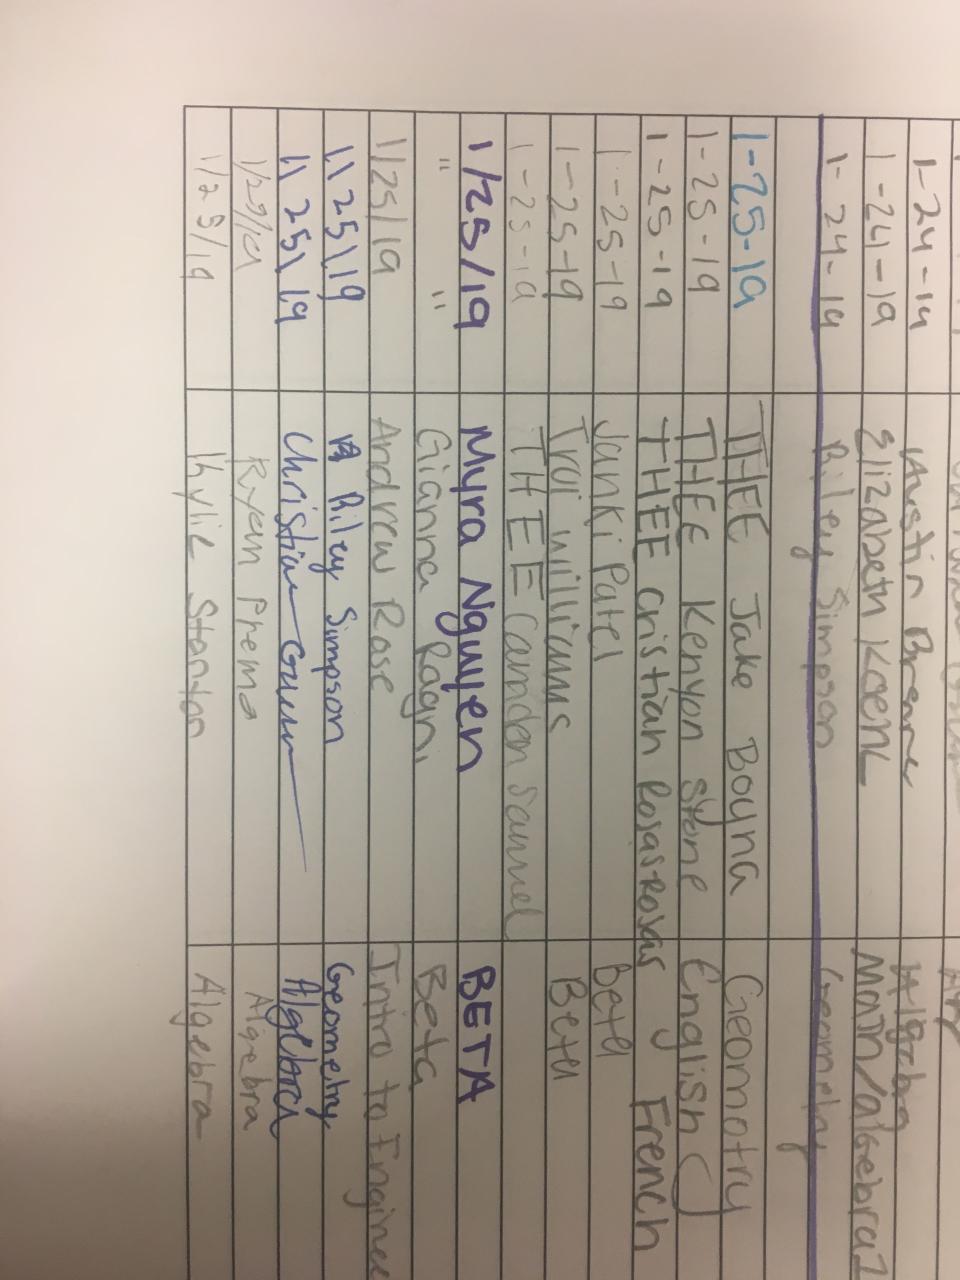 1-24-19 Austin Algebra
1-24-19 Elizabeth Keene Math/algebra 1
1-24-19 Riley Simpson Geometry
1-25-19 THEE Jake Boyna Geometry
1-25-19 THEE Kenyon Stone English
1-25-19 THEE Cristian Rosas-Rosas French
1-25-19 Janki Patel Beta
1-25-19 Troi Williams Beta
1-25-19 THEE Camden Samuel
1/25/19 Myra Nguyen BETA
" " Gianna Ragni Beta
1/25/19 Andrew Rose Intro to Enginee
1\25\19 Riley Simpson Geometry
1\25\19 Christian Algebra
Ryan Algebra
Kylie Stanton Algebra